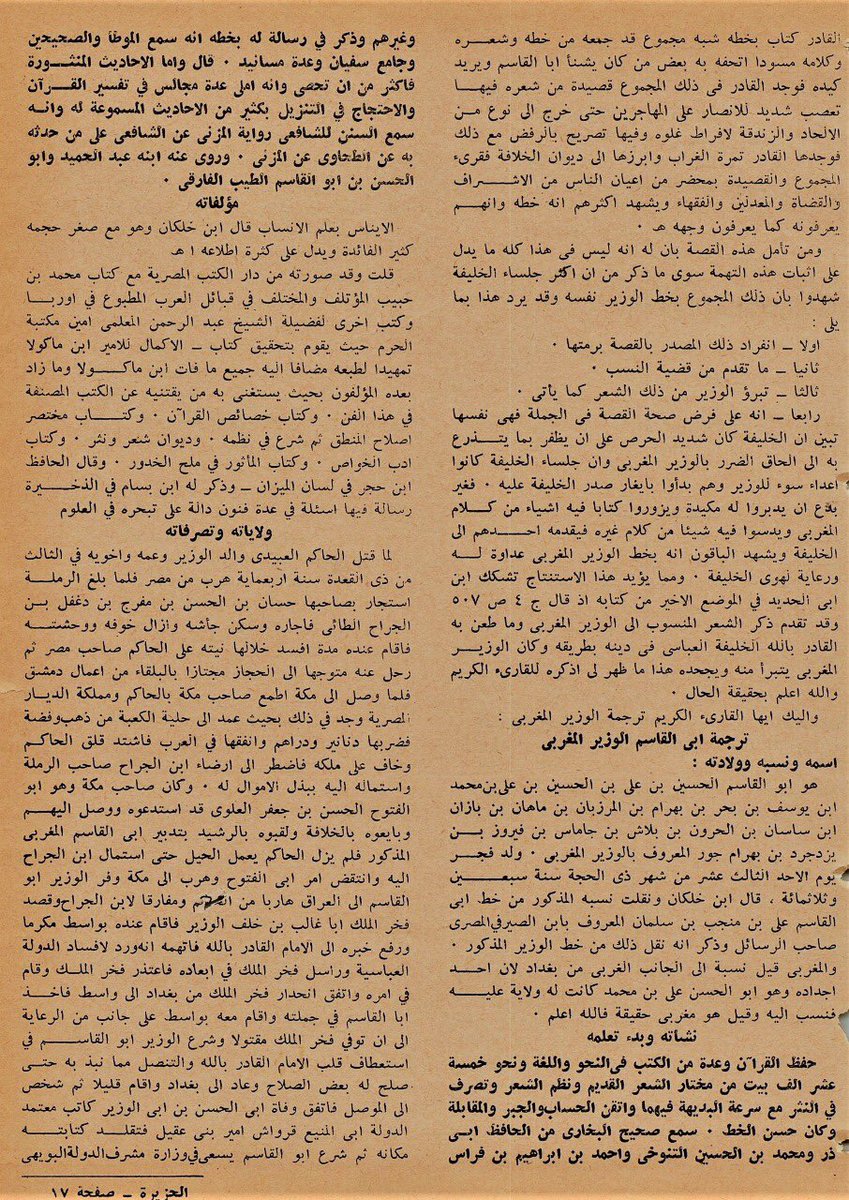 القادر كتاب بخطه شبه مجموع قد جمعه من خطه وشعره
وكلامه مسودا اتحفه به بعض من كان يشنأ ابا القاسم ويريد
كيده فوجد القادر فى ذلك المجموع قصيدة من شعره فيها
تعصب شديد للانصار على المهاجرين حتى خرج الى نوع من
الالحاد والزندقة لافراط غلوه وفيها تصريح بالرفض مع ذلك
فوجدها القادر تمرة الغراب وابرزها الى ديوان الخلافة فقرىء
المجموع والقصيدة بمحضر من اعيان الناس من الاشراف
والقضاة والمعدلين والفقهاء ويشهد اكثرهم انه خطه وانهم
يعرفونه كما يعرفون وجهه هـ ·
ومن تأمل هذه القصة بان له انه ليس فى هذا كله ما يدل
على اثبات هذه التهمة سوى ما ذكر من ان اكثر جلساء الخليفة
شهدوا بان ذلك المجموع بخط الوزير نفسه وقد يرد هذا بما
يلى :
اولا ــ انفراد ذلك المصدر بالقصة برمتها ·
ثانيا ــ ما تقدم من قضية النسب ·
ثالثا ــ تبرؤ الوزير من ذلك الشعر كما يأتى ·
رابعا ــ انه على فرض صحة القصة فى الجملة فهى نفسها
تبين ان الخليفة كان شديد الحرص على ان يظفر بما يتذرع
به الى الحاق الضرر بالوزير المغربى وان جلساء الخليفة كانوا
أعداء سوء للوزير وهم بدأوا بايغار صدر الخليفة عليه · فغير
بدع ان يدبروا له مكيدة ويزوروا كتابا فيه اشياء من كلام
المغربى ويدسوا فيه شيئا من كلام غيره فيقدمه احدهم الى
الخليفة ويشهد الباقون انه بخط الوزير المغربى عداوة له
ورعاية لهوى الخليفة · ومما يؤيد هذا الاستنتاج تشكك ابن
ابى الحديد فى الموضع الاخير من كتابه اذ قال ج ٤ ص ٥٠٧
وقد تقدم ذكر الشعر المنسوب الى الوزير المغربى وما طعن به
القادر بالله الخليفة العباسى فى دينه بطريقه وكان الوزير
المغربى يتبرأ منه ويجحده هذا ما ظهر لى اذكره للقارىء الكريم
والله اعلم بحقيقة الحال ·
واليك ايها القارىء الكريم ترجمة الوزير المغربى :
ترجمة ابى القاسم الوزير المغربى
اسمه ونسبه وولادته :
هو ابو القاسم الحسين بن على بن الحسين بن على بن محمد
ابن يوسف بن بحر بن بهرام بن المرزبان بن ماهان بن باذان
ابن ساسان بن الحرون بن بلاش بن جاماس بن فيروز بن
يزدجرد بن بهرام جور المعروف بالوزير المغربى · ولد فجر
يوم الاحد الثالث عشر من شهر ذى الحجة سنة سبعين
وثلاثمائة ، قال ابن خلكان ونقلت نسبه المذكور من خط ابى
القاسم على بن منجب بن سلمان المعروف بابن الصيرفى المصرى
صاحب الرسائل وذكر انه نقل ذلك من خط الوزير المذكور ·
والمغربى قيل نسبة الى الجانب الغربى من بغداد لان احد
اجداده وهو ابو الحسن على بن محمد كانت له ولاية عليه
فنسب اليه وقيل هو مغربى حقيقة فالله اعلم ·
نشأته وبدء تعلمه
حفظ القرآن وعدة من الكتب فى النحو واللغة ونحو خمسة
عشر الف بيت من مختار الشعر القديم ونظم الشعر وتصرف
فى النثر مع سرعة البديهة فيهما واتقن الحساب والجبر والمقابلة
وكان حسن الخط · سمع صحيح البخارى من الحافظ ابى
ذر ومحمد بن الحسين التنوخى واحمد بن ابراهيم بن فراس
وغيرهم وذكر في رسالة له بخطه انه سمع الموطأ والصحيحين
وجامع سفيان وعدة مسانيد · قال واما الاحاديث المنثورة
فاكثر من ان تحصى وانه املى عدة مجالس في تفسير القرآن
والاحتجاج في التنزيل بكثير من الاحاديث المسموعة له وانه
سمع السنن للشافعى رواية المزنى عن الشافعى على من حدثه
به عن الطحاوى عن المزنى · وروى عنه ابنه عبد الحميد وابو
الحسن بن ابو القاسم الطيب الفارقى ·
مؤلفاته
الايناس بعلم الانساب قال ابن خلكان وهو مع صغر حجمه
كثير الفائدة ويدل على كثرة اطلاعه ا هـ
قلت وقد صورته من دار الكتب المصرية مع كتاب محمد بن
حبيب المؤتلف والمختلف في قبائل العرب المطبوع في اوربا
وكتب اخرى لفضيلة الشيخ عبد الرحمن المعلمى امين مكتبة
الحرم حيث يقوم بتحقيق كتاب ــ الاكمال للامير ابن ماكولا
تمهيدا لطبعه مضافا اليه جميع ما فات ابن ماكولا وما زاد
بعده المؤلفون بحيث يستغنى به من يقتنيه عن الكتب المصنفة
في هذا الفن · وكتاب خصائص القرآن · وكتاب مختصر
اصلاح المنطق ثم شرع في نظمه · وديوان شعر ونثر · وكتاب
ادب الخواص · وكتاب المأثور في ملح الخدور · وقال الحافظ
ابن حجر في لسان الميزان ــ وذكر له ابن بسام في الذخيرة
رسالة فيها اسئلة في عدة فنون دالة على تبحره في العلوم
ولاياته وتصرفاته
لما قتل الحاكم العبيدى والد الوزير وعمه واخويه في الثالث
من ذى القعدة سنة اربعماية هرب من مصر فلما بلغ الرملة
استجار بصاحبها حسان بن الحسن بن مفرج بن دغفل بن
الجراح الطائى فاجاره وسكن جأشه وازال خوفه ووحشته
فاقام عنده مدة افسد خلالها نيته على الحاكم صاحب مصر ثم
رحل عنه متوجها الى الحجاز مجتازا بالبلقاء من اعمال دمشق
فلما وصل الى مكة اطمع صاحب مكة بالحاكم ومملكة الديار
المصرية وجد في ذلك بحيث عمد الى حلية الكعبة من ذهب وفضة
فضربها دنانير ودراهم وانفقها في العرب فاشتد قلق الحاكم
وخاف على ملكه فاضطر الى ارضاء ابن الجراح صاحب الرملة
واستماله اليه ببذل الاموال له · وكان صاحب مكة وهو ابو
الفتوح الحسن بن جعفر العلوى قد استدعوه ووصل اليهم
وبايعوه بالخلافة ولقبوه بالرشيد بتدبير ابى القاسم المغربى
المذكور فلم يزل الحاكم يعمل الحيل حتى استمال ابن الجراح
اليه وانتقض امر ابى الفتوح وهرب الى مكة وفر الوزير ابو
القاسم الى العراق هاربا من ومفارقا لابن الجراح وقصد
فخر الملك ابا غالب بن خلف الوزير فاقام عنده بواسط مكرما
ورفع خبره الى الامام القادر بالله فاتهمه انه ورد لافساد الدولة
العباسية وراسل فخر الملك في ابعاده فاعتذر فخر الملك وقام
في امره واتفق انحدار فخر الملك من بغداد الى واسط فاخذ
ابا القاسم في جملته واقام معه بواسط على جانب من الرعاية
الى ان توفي فخر الملك مقتولا وشرع الوزير ابو القاسم في
استعطاف قلب الامام القادر بالله والتنصل مما نبذ به حتى
صلح له بعض الصلاح وعاد الى بغداد واقام قليلا ثم شخص
الى الموصل فاتفق وفاة ابى الحسن بن ابى الوزير كاتب معتمد
الدولة ابى المنيع قرواش امير بنى عقيل فتقلد كتابته
مكانه ثم شرع ابو القاسم يسعى في وزارة مشرف الدولة البويهى
الجزيرة ــ صفحة ١٧